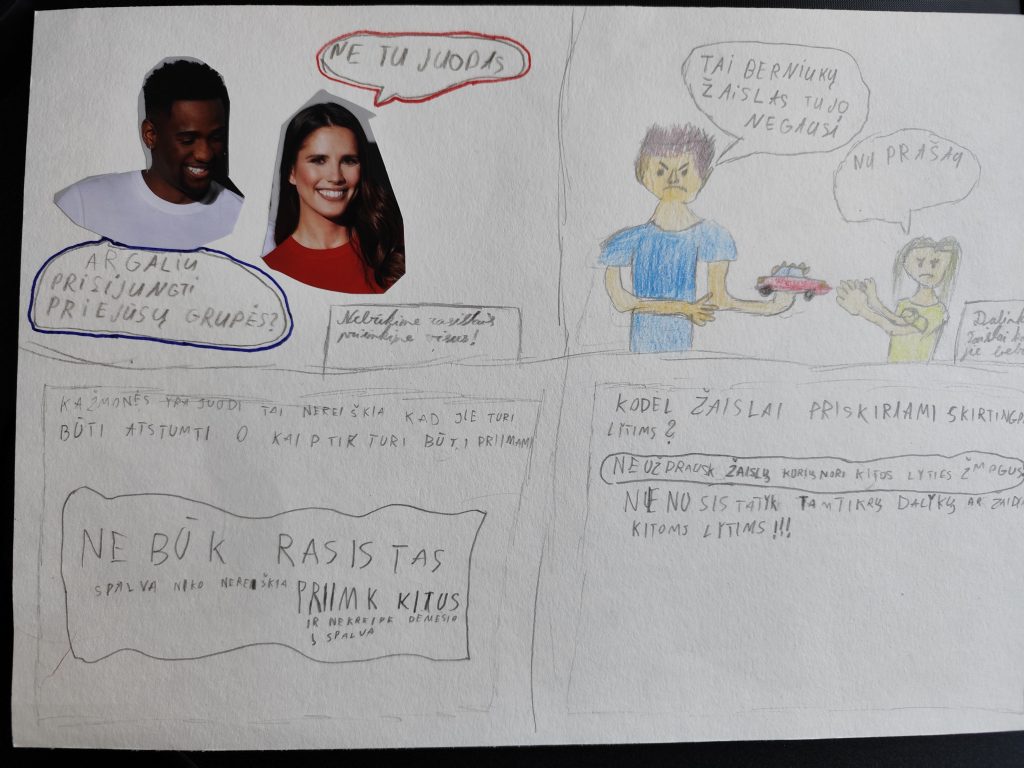 NE TU JUODAS
AR GALIU
PRISIJUNGTI
PRIEJUSŲ GRUPĖS?
Nebūkime rasistais
priimkime visus!
TAI BERNIUKŲ
ŽAISLAS TU JO
NEGAUSI
NU PRAŠAU
KAŽMONĖS YRA JUODI TAI NEREIŠKIA KAD JIE TURI
BŪTI ATSTUMTI O KAIPTIK TURI BŪTI PRIIMAMI
NEBŪK RASISTAS
SPALVA NIKO NEREIŠKIA
PRIIMK KITUS
IR NEKREIPK DĖMESIO
Į SPALVĄ
KODEL ŽAISLAI PRISKIRIAMI SKIRTINGO
LYTIMS?
NEUŽDRAUSK ŽAISLŲ KORIŲ NORI KITOS LYTIES ŽMOGUS
NUSISTATYK TAMTIKRŲ DALYKŲ AR
KITOMS LYTIMS!!!